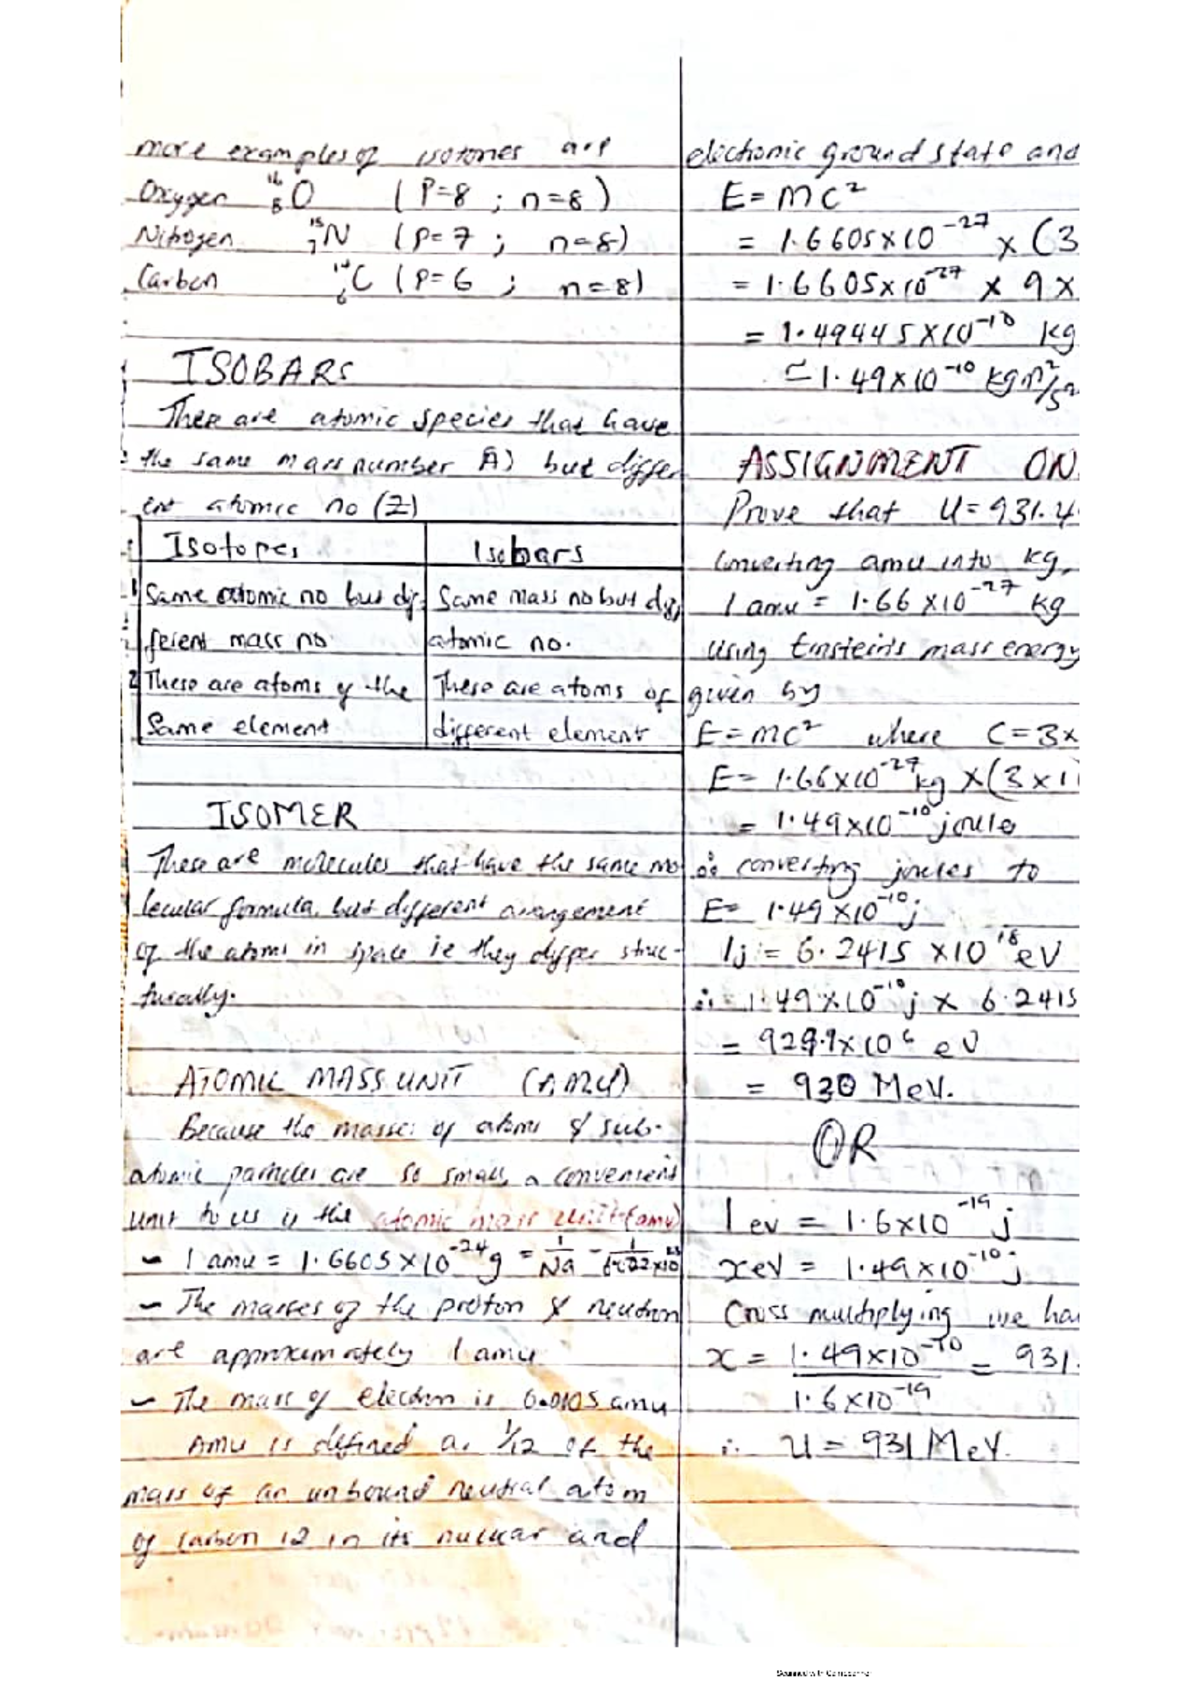 more examples of isotones are
Oxygen ¹⁶₈O (P=8 ; n=8)
Nitrogen ¹⁵₇N (P=7 ; n=8)
Carbon ¹⁴₆C (P=6 ; n=8)
ISOBARS
These are atomic species that have
the same mass number A) but differ
ent atomic no (Z)
Isotopes Isobars
1 Same atomic no but dif- Same mass no but diff
ferent mass no. atomic no.
2 These are atoms of the These are atoms of
Same element different element
ISOMER
These are molecules that have the same mo
lecular formula, but different arrangement
of the atoms in space ie they differ struc-
turally.
ATOMIC MASS UNIT (AMU)
Because the masses of atoms & sub-
atomic particles are so small, a convenient
unit to us is the atomic mass unit (amu)
– 1 amu = 1.6605 x 10⁻²⁴g = 1/Na = 1/6.02x10²³
– The masses of the proton & neutron
are approximately 1 amu
– The mass of electron is amu
Amu is defined as 1/12 of the
mass of an unbound neutral atom
of carbon 12 in its nuclear and
electronic ground state and
E = mc²
= 1.6605 x 10⁻²⁷ x (3
= 1.6605 x 10⁻²⁷ x 9 x
= 1.49445 x 10⁻¹⁰ kg
≃ 1.49 x 10⁻¹⁰ kgm²/s²
ASSIGNMENT ON
Prove that U = 931.4
Converting amu into kg,
1 amu = 1.66 x 10⁻²⁷ kg
using Einstein's mass energy
given by
E = mc² where C = 3x
E = 1.66 x 10⁻²⁷ kg x (3 x 1
= 1.49 x 10⁻¹⁰ joule
∴ converting joules to
E = 1.49 x 10⁻¹⁰ j
1j = 6.2415 x 10¹⁸ eV
∴ = 1.49 x 10⁻¹⁰ j x 6.2415
= 929.9 x 10⁶ eV
= 930 MeV.
OR
1 ev = 1.6 x 10⁻¹⁹ j
xeV = 1.49 x 10⁻¹⁰ j
Cross multiplying we ha
x = 1.49x10⁻¹⁰/1.6x10⁻¹⁹ = 931.
∴ U = 931 MeV.
Scanned with CamScanner